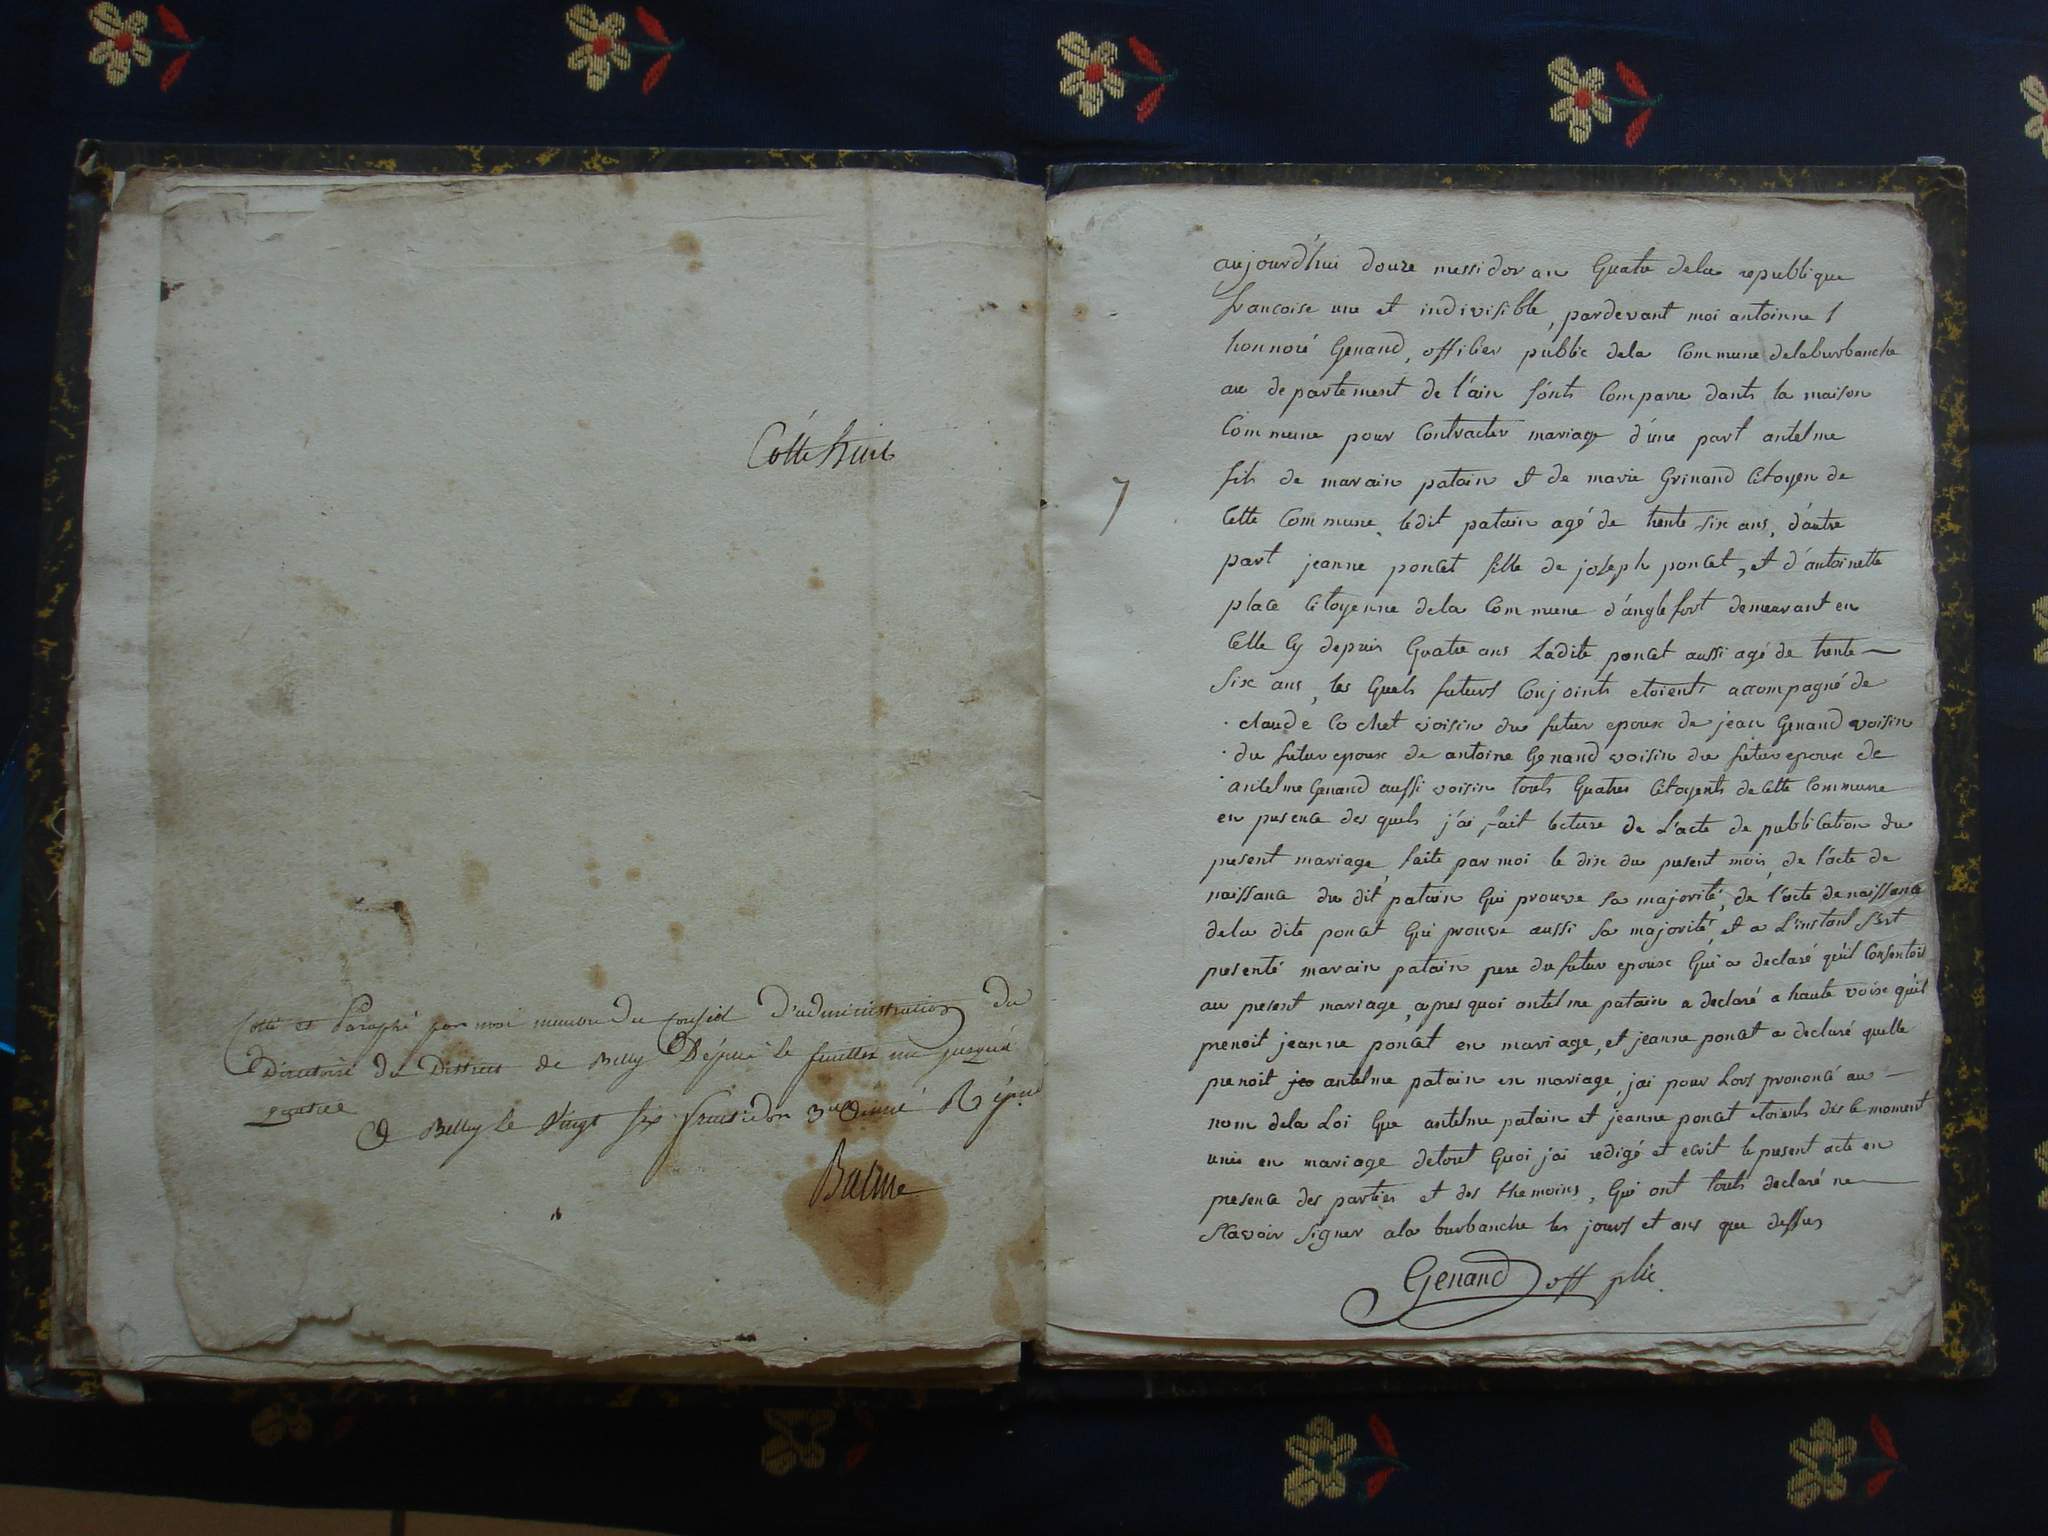 Cotte huit
Cotté et Paraphé par moi membre du conseil D'administration du
Directoire du District de Belley Depuis le feuillet un jusqu'à
quatre
A Belley le Vingt six fructidor 3me année Répne
Balme
7
aujourd'hui douze messidor an Quatre dela republique
francoise une et indivisible, pardevant moi antoinne
honnoré Genand, officier public dela Commune delaburbanche
au departement de l'ain sonts Comparu dants la maison
Commune pour Contracter mariage d'une part antelme
fils de marain patain et de marie Grinand Citoyen de
Cette Commune, ledit patain agé de trente six ans, d'autre
part jeanne poncet fille de joseph poncet, et d'antoinette
place Citoyenne dela Commune d'anglefort demeurant en
Celle Cy depuis Quatre ans Ladite poncet aussi agé de trente
six ans, les Quels futurs Conjoints etoients accompagné de
claude Cochet voisin du futur epoux de jean Genand voisin
du futur epoux de antoine Genand voisin du futur epoux de
antelme Genand aussi voisin touts Quatres Citoyents de Cette Commune
en presence des quels j'ai fait lecture de L'acte de publication du
present mariage, faite par moi le dix du present mois, de l'acte de
naissance du dit patain Qui prouve sa majorité, de l'acte de naissance
dela dite poncet Qui prouve aussi sa majorité, et a L'instant s'est
presenté marain patain pere du futur epoux Qui a declaré qu'il Consentoit
au present mariage, apres quoi antelme patain a declaré a haute voix qu'il
prenoit jeanne poncet en mariage, et jeanne poncet a declaré quelle
prenoit jea antelme patain en mariage, j'ai pour Lors prononcé au
nom dela Loi Que antelme patain et jeanne poncet etoients dès le moment
unis en mariage detout Quoi j'ai redigé et ecrit le present acte en
presence des parties et des themoins, Qui ont touts declaré ne
scavoir signer ala burbanche les jours et ans que dessus
Genand off plic.